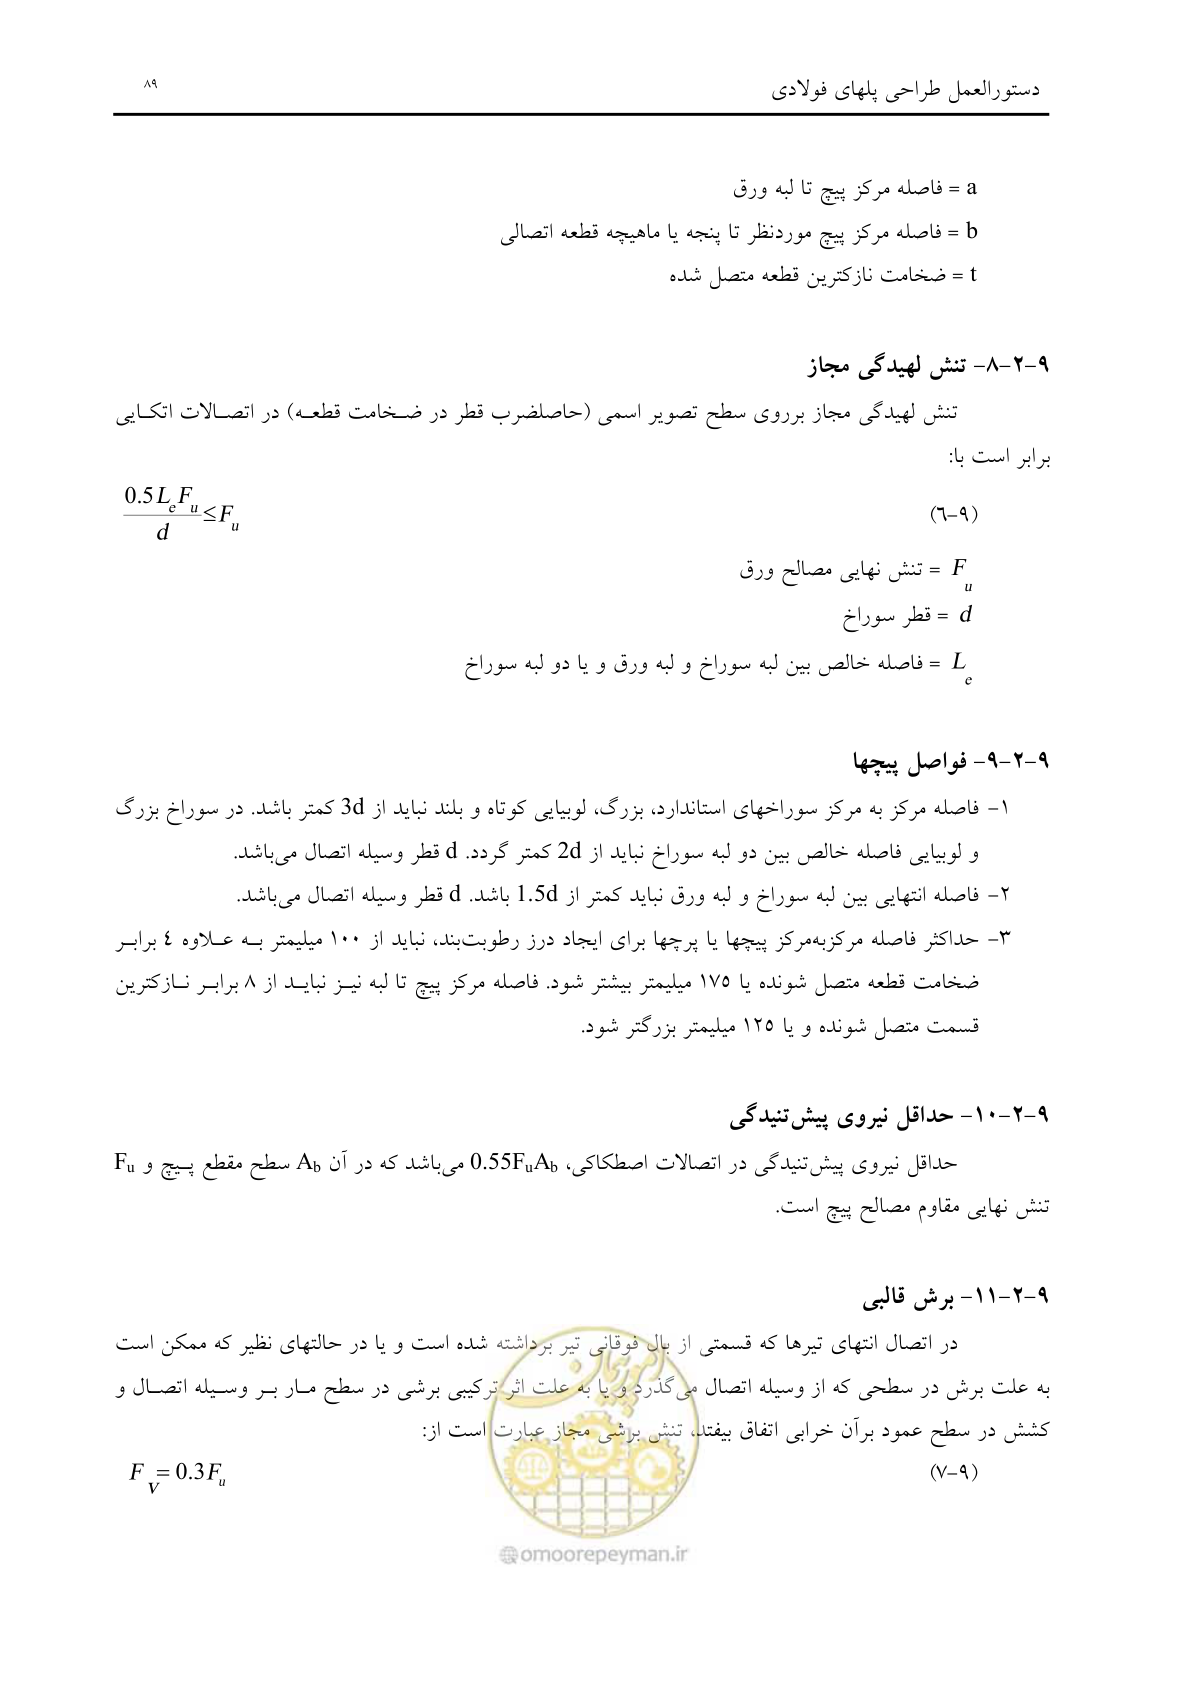 دستورالعمل طراحی پلهای فولادی ۸۹
a = فاصله مرکز پیچ تا لبه ورق
b = فاصله مرکز پیچ موردنظر تا پنجه یا ماهیچه قطعه اتصالی
t = ضخامت نازکترین قطعه متصل شده
۹-۲-۸- تنش لهیدگی مجاز
تنش لهیدگی مجاز برروی سطح تصویر اسمی (حاصلضرب قطر در ضخامت قطعه) در اتصالات اتکایی
برابر است با:
(۹-۶) 0.5 L_e F_u / d ≤ F_u
F_u = تنش نهایی مصالح ورق
d = قطر سوراخ
L_e = فاصله خالص بین لبه سوراخ و لبه ورق و یا دو لبه سوراخ
۹-۲-۹- فواصل پیچها
۱- فاصله مرکز به مرکز سوراخهای استاندارد، بزرگ، لوبیایی کوتاه و بلند نباید از 3d کمتر باشد. در سوراخ بزرگ
و لوبیایی فاصله خالص بین دو لبه سوراخ نباید از 2d کمتر گردد. d قطر وسیله اتصال می‌باشد.
۲- فاصله انتهایی بین لبه سوراخ و لبه ورق نباید کمتر از 1.5d باشد. d قطر وسیله اتصال می‌باشد.
۳- حداکثر فاصله مرکزبه‌مرکز پیچها یا پرچها برای ایجاد درز رطوبت‌بند، نباید از ۱۰۰ میلیمتر به علاوه ۴ برابر
ضخامت قطعه متصل شونده یا ۱۷۵ میلیمتر بیشتر شود. فاصله مرکز پیچ تا لبه نیز نباید از ۸ برابر نازکترین
قسمت متصل شونده و یا ۱۲۵ میلیمتر بزرگتر شود.
۹-۲-۱۰- حداقل نیروی پیش‌تنیدگی
حداقل نیروی پیش‌تنیدگی در اتصالات اصطکاکی، 0.55F_uA_b می‌باشد که در آن A_b سطح مقطع پیچ و F_u
تنش نهایی مقاوم مصالح پیچ است.
۹-۲-۱۱- برش قالبی
در اتصال انتهای تیرها که قسمتی از بال فوقانی تیر برداشته شده است و یا در حالتهای نظیر که ممکن است
به علت برش در سطحی که از وسیله اتصال می‌گذرد و یا به علت اثر ترکیبی برشی در سطح مار بر وسیله اتصال و
کشش در سطح عمود برآن خرابی اتفاق بیفتد، تنش برشی مجاز عبارت است از:
(۹-۷) F_V = 0.3F_u
امور پیمان
@omoorepeyman.ir